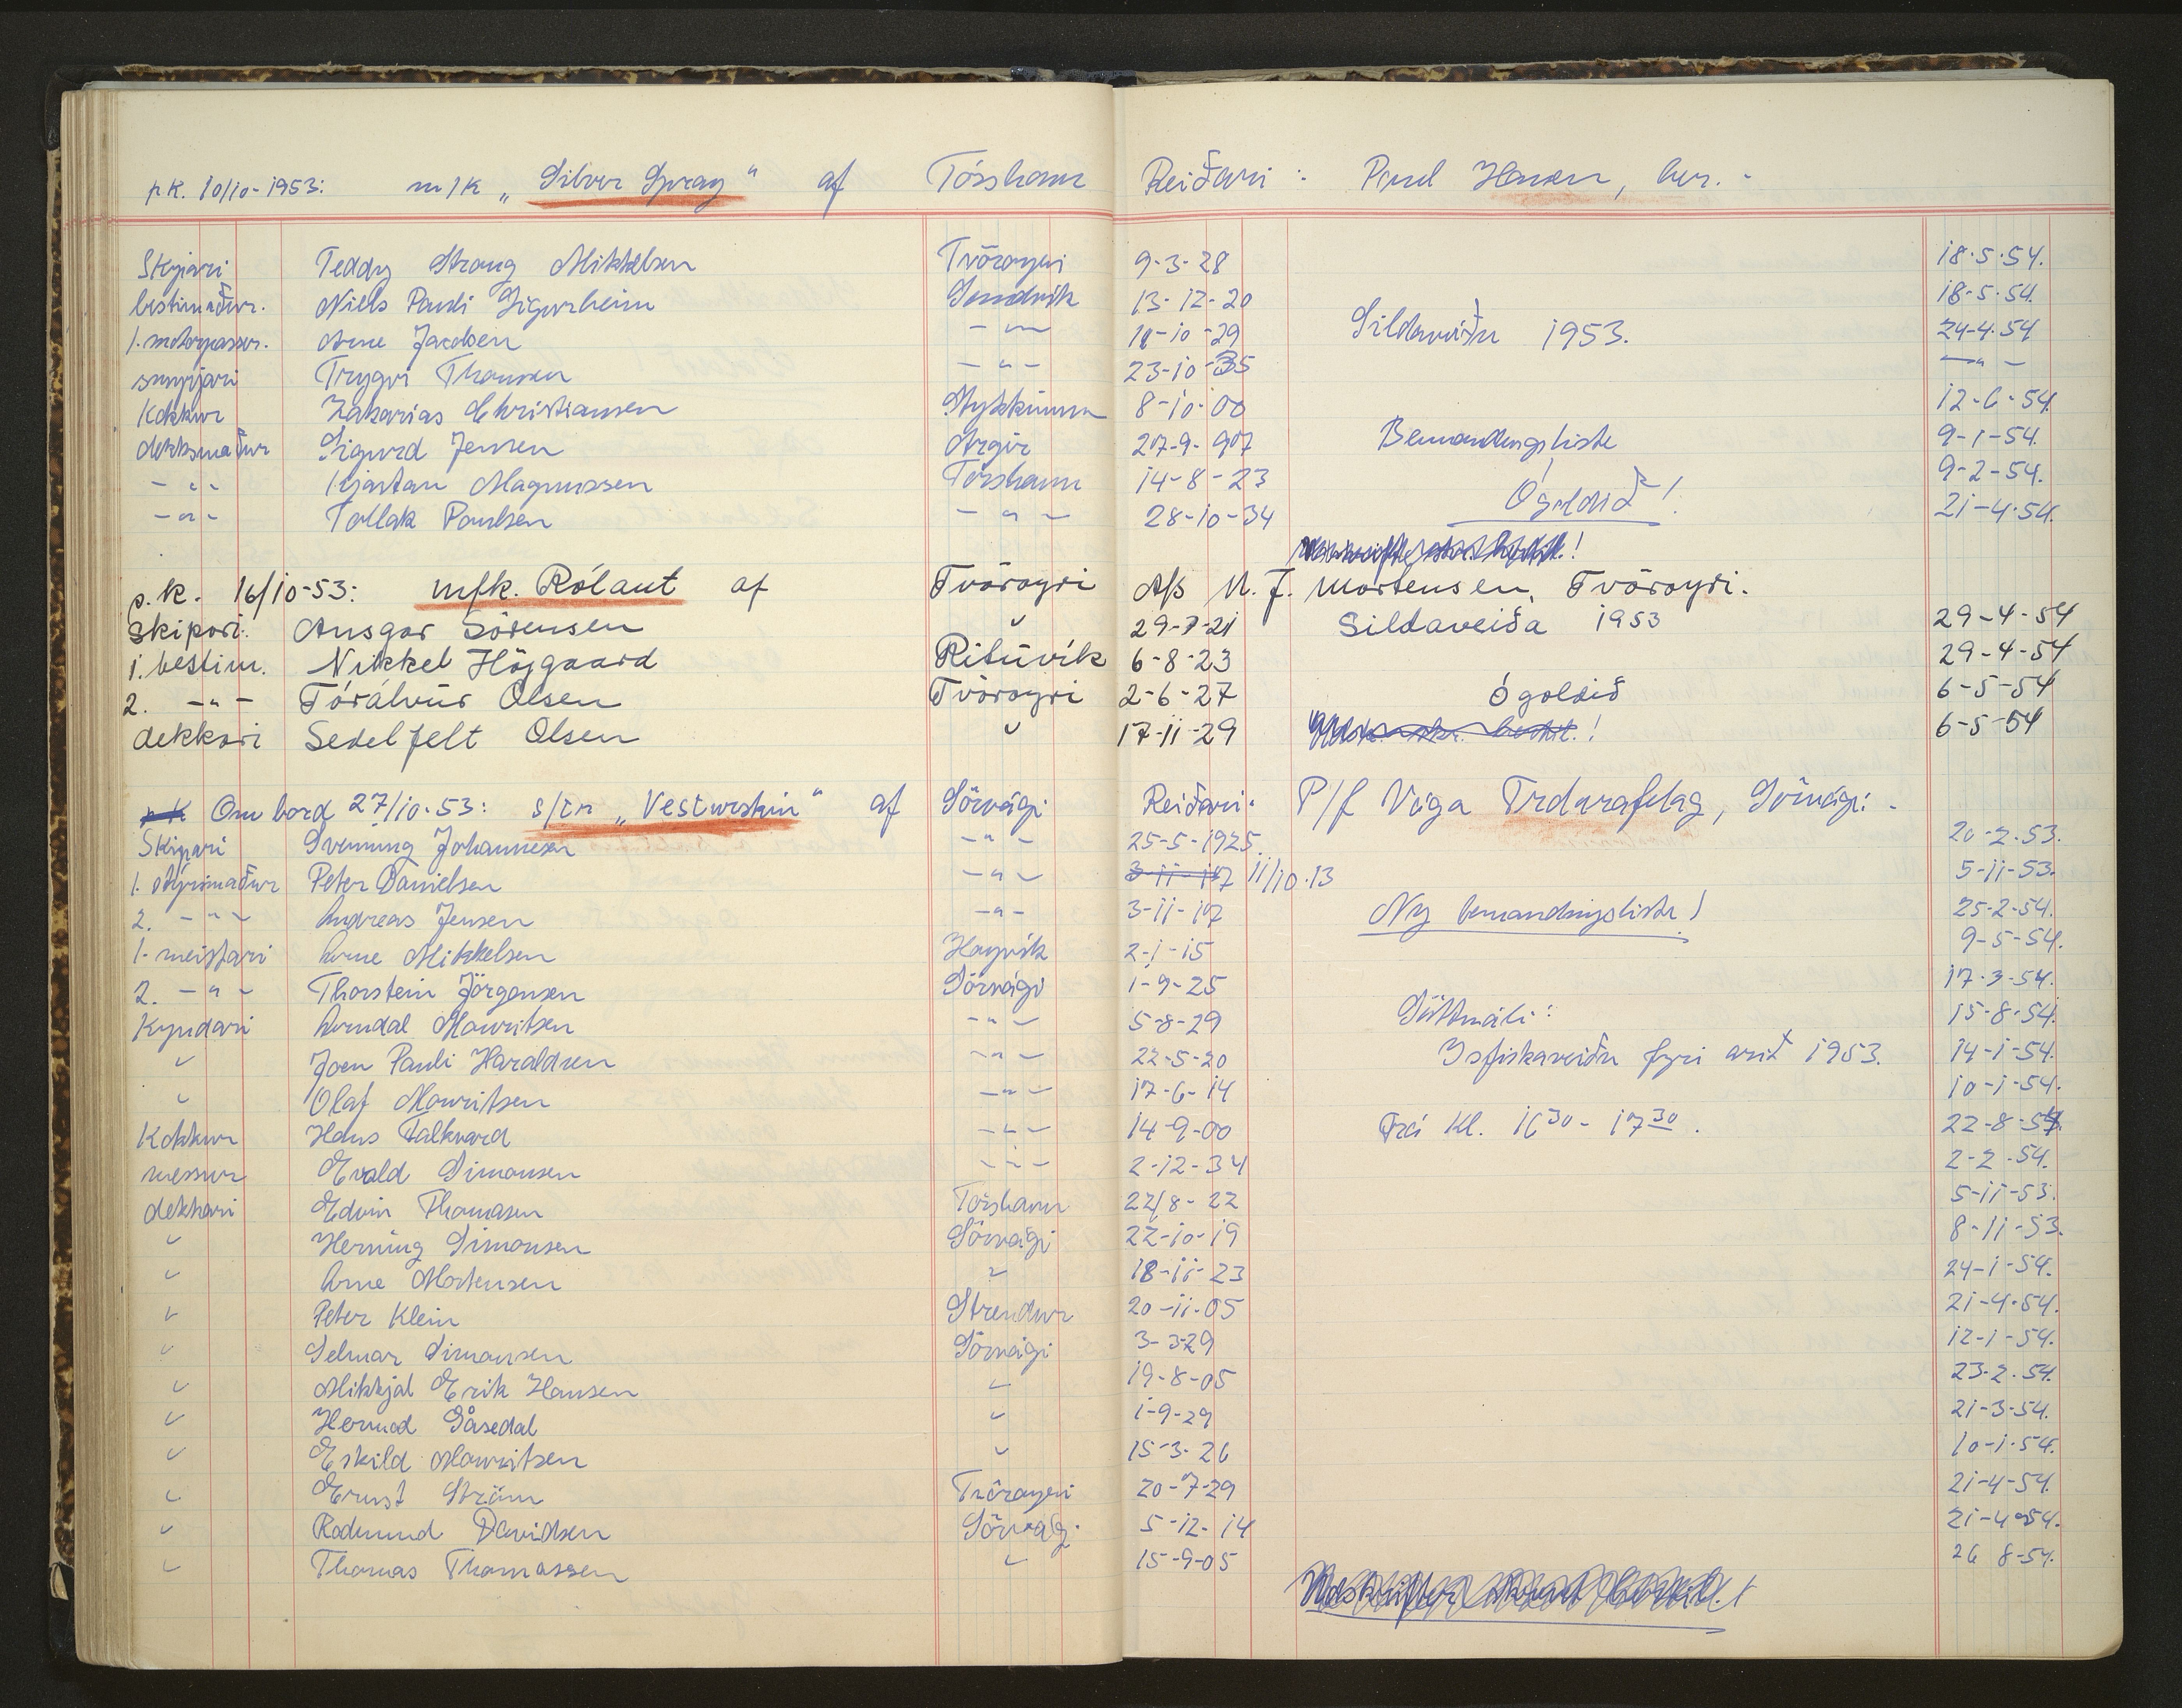 p.k. 10/10-1953: m/k „Silver Spray" af Tórshavn Reiðari: Poul Hansen, her. -
Skipari Teddy Strong Mikkelsen Tvöroyri 9-3-28 18.5.54.
bestimaður. Niels Pauli Sigurheim Sandvik 13-12-20 18-5-54.
1. motorpassar. Arne Jacobsen - " - 18-10-29 Sildaveiðu 1953. 24-4-54
smyrjari Trygvi Thomsen - " - 23-10-35 - " -
Kokkur Zakarias Christiansen Stykkinum 8-10-00 12-6-54.
dekksmaður Sigurd Jensen Argir 27-9-907 Bemandingsliste 9-1-54.
- " - Kjartan Magnussen Tórshavn 14-8-23 9-2-54.
- " - Tollak Poulsen - " - 28-10-34 Ógoldið! 21-4-54.
p.k. 16/10-53: m/k. Rólant af Tvöroyri A/s N. J. Mortensen, Tvöroyri.
Skipari. Ansgar Sörensen " 29-7-21 Sildaveiða 1953 29-4-54
1. bestim. Nikkel Höjgaard Rituvík 6-8-23 29-4-54
2. - " - Tórálvur Olsen Tvöroyri 2-6-27 Ógoldið 6-5-54
dekkari Sedelfelt Olsen " 17-11-29 6-5-54
p.k Om bord 27/10-53: s/tr „Vesturskin" af Sörvági Reiðari: P/f Vága Trolarafelag, Sörvági. -
Skipari Svenning Johannesen - " - 25-5-1925 20-2-53.
1. stýrimaður Peter Danielsen - " - 3-11-17 11/10.13 5-11-53.
2. - " - Andreas Jensen - " - 3-11-17 Ny bemandingsliste! 25-2-54.
1. meistari Arne Mikkelsen Hoyvík 2-1-15 9-5-54.
2. - " - Thorstein Jörgensen Sörvági 1-9-25 17-3-54.
Kyndari Arndal Mouritsen - " - 5-8-29 Sáttmáli: 15-8-54.
" Joen Pauli Haraldsen - " - 22-5-20 Isfiskaveiðu fyri arið 1953. 14-1-54.
" Olaf Mouritsen - " - 17-6-14 10-1-54.
Kokkur Hans Falkvard - " - 14-9-00 Frá Kl. 16 30 - 17 30. 22-8-54.
messur Evald Simonsen - " - 2-12-34 2-2-54.
dekkari Edvin Thomasen Tórshavn 22/8-22 5-11-53.
" Henning Simonsen Sörvági 22-10-19 8-11-53.
" Arne Mortensen " 18-11-23 24-1-54.
" Peter Klein Strendur 20-11-05 21-4-54.
" Selmar Simonsen Sörvági 3-3-29 12-1-54.
" Mikkjal Erik Hansen " 19-8-05 23-2-54.
" Hermod Gåsedal " 1-9-29 21-3-54.
" Eskild Mouritsen " 15-3-26 10-1-54.
" Ernst Ström Tvöroyri 20-7-29 21-4-54.
" Rodmund Davidsen Sörvági 5-12-14 21-4-54.
" Thomas Thomassen " 15-9-05 26 8-54.